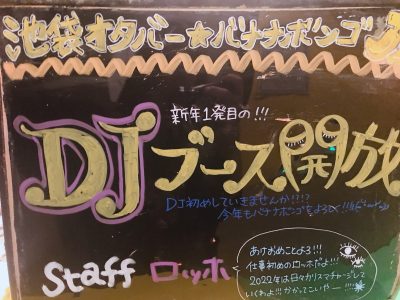 池袋オタバー☆バナナボンゴ
新年1発目の!!!
DJブース開放
DJ初めしていきませんか!?!?
今年もバナナボンゴをよろしく!!!
Staff ロッホ
あけおめことよろ!!!
仕事初めのロッホだよ!!!
2022年は日々カリスマチャージして
いくわよ!!!かかってこいやー!!!!